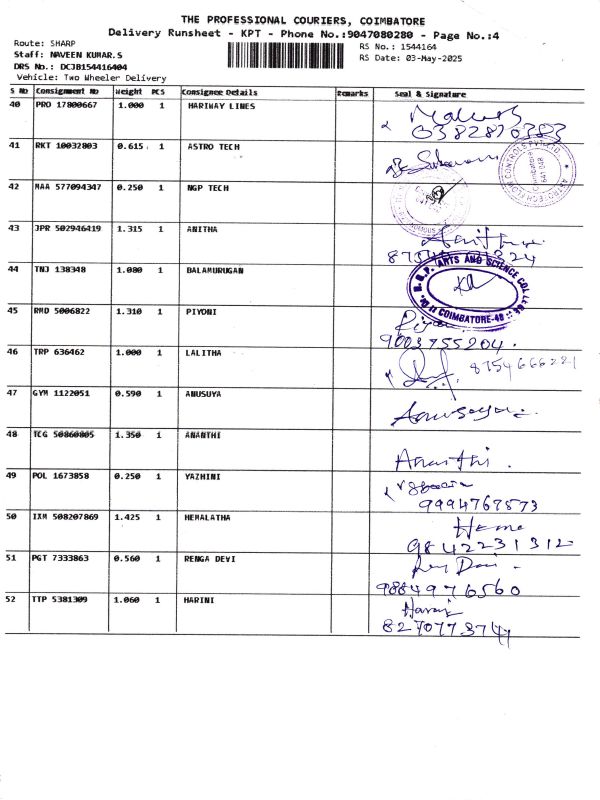 THE PROFESSIONAL COURIERS, COIMBATORE
Delivery Runsheet - KPT - Phone No.:9047080280 - Page No.:4
Route: SHARP
RS No.: 1544164
Staff: NAVEEN KUMAR.S
RS Date: 03-May-2025
DRS No.: DCJB154416404
Vehicle: Two Wheeler Delivery
S No Consignment No Weight PCS Consignee Details Remarks Seal & Signature
40 PRO 17800667 1.000 1 HARIWAY LINES
41 RKT 10032803 0.615 1 ASTRO TECH
42 MAA 577094347 0.250 1 NGP TECH
43 JPR 502946419 1.315 1 ANITHA
44 TNJ 138348 1.080 1 BALAMURUGAN
ARTS AND SCIENCE COLLEGE
COIMBATORE-48
45 RMD 5006822 1.310 1 PIYONI
9003755204.
46 TRP 636462 1.000 1 LALITHA
8754666221
47 GYM 1122051 0.590 1 ANUSUYA
Anusuya
48 TCG 50860805 1.350 1 ANANTHI
Ananthi.
49 POL 1673858 0.250 1 YAZHINI
9994767573
50 IXM 508207869 1.425 1 HEMALATHA
Hema
9842231312
51 PGT 7333863 0.560 1 RENGA DEVI
9884976560
52 TTP 5381309 1.060 1 HARINI
Harini